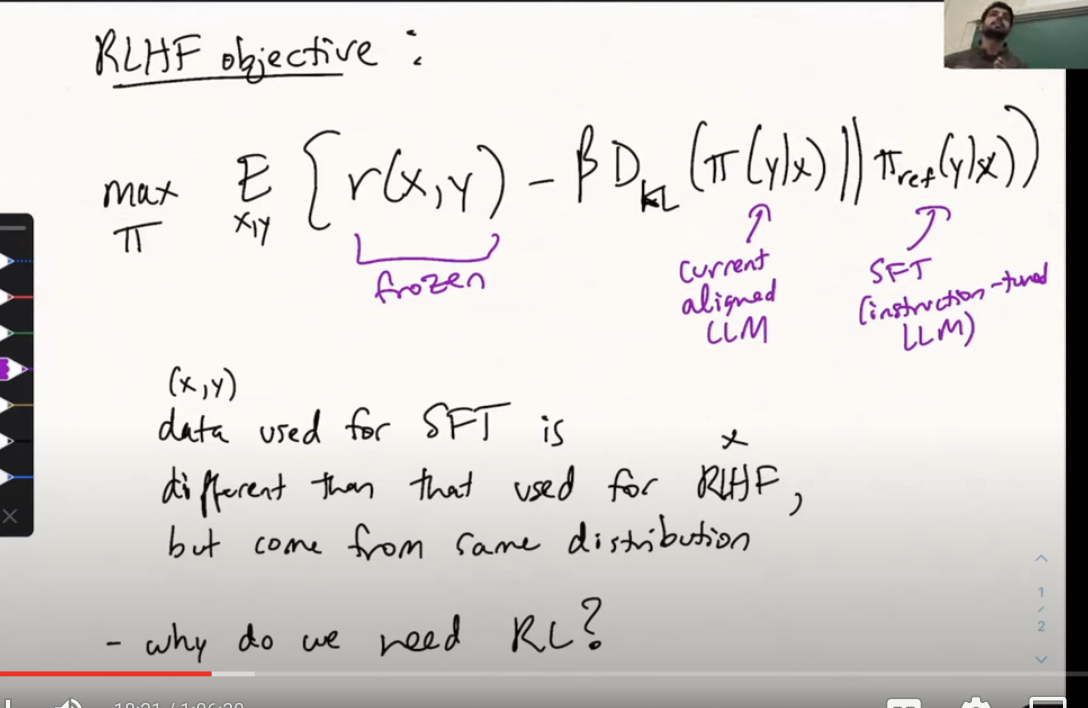 RLHF objective :
max E { r(x,y) - β D_KL (π(y|x) || π_ref(y|x))
π x,y
frozen
current
aligned
LLM
SFT
(instruction-tuned
LLM)
(x,y)
data used for SFT is
x
different than that used for RLHF,
but come from same distribution
- why do we need RL?
1
/
2